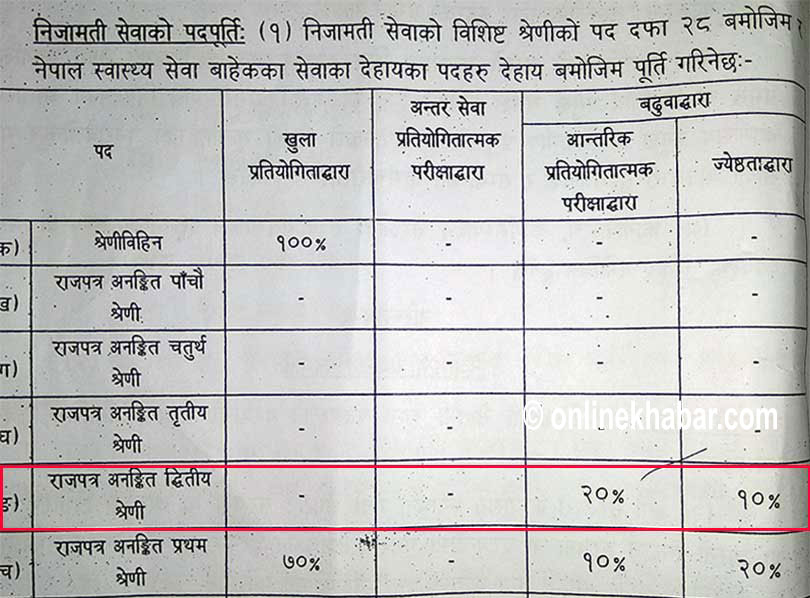 निजामती सेवाको पदपूर्तिः (१) निजामती सेवाको विशिष्ट श्रेणीकों पद दफा २८ बमोजिम र
नेपाल स्वास्थ्य सेवा बाहेकका सेवाका देहायका पदहरु देहाय बमोजिम पूर्ति गरिनेछः-
पद
खुला
प्रतियोगिताद्वारा
अन्तर सेवा
प्रतियोगितात्मक
परीक्षाद्वारा
बढुवाद्धारा
आन्तरिक
प्रतियोगितात्मक
परीक्षाद्वारा
ज्येष्ठताद्वारा
क) श्रेणीविहिन १००% - - -
ख) राजपत्र अनङ्कित पाँचौ
श्रेणी - - - -
ग) राजपत्र अनङ्कित चतुर्थ
श्रेणी - - - -
घ) राजपत्र अनङ्कित तृतीय
श्रेणी - - - -
© onlinekhabar.com
ङ) राजपत्र अनङ्कित द्वितीय
श्रेणी - - २०% १०%
च) राजपत्र अनङ्कित प्रथम
श्रेणी ७०% - १०% २०%